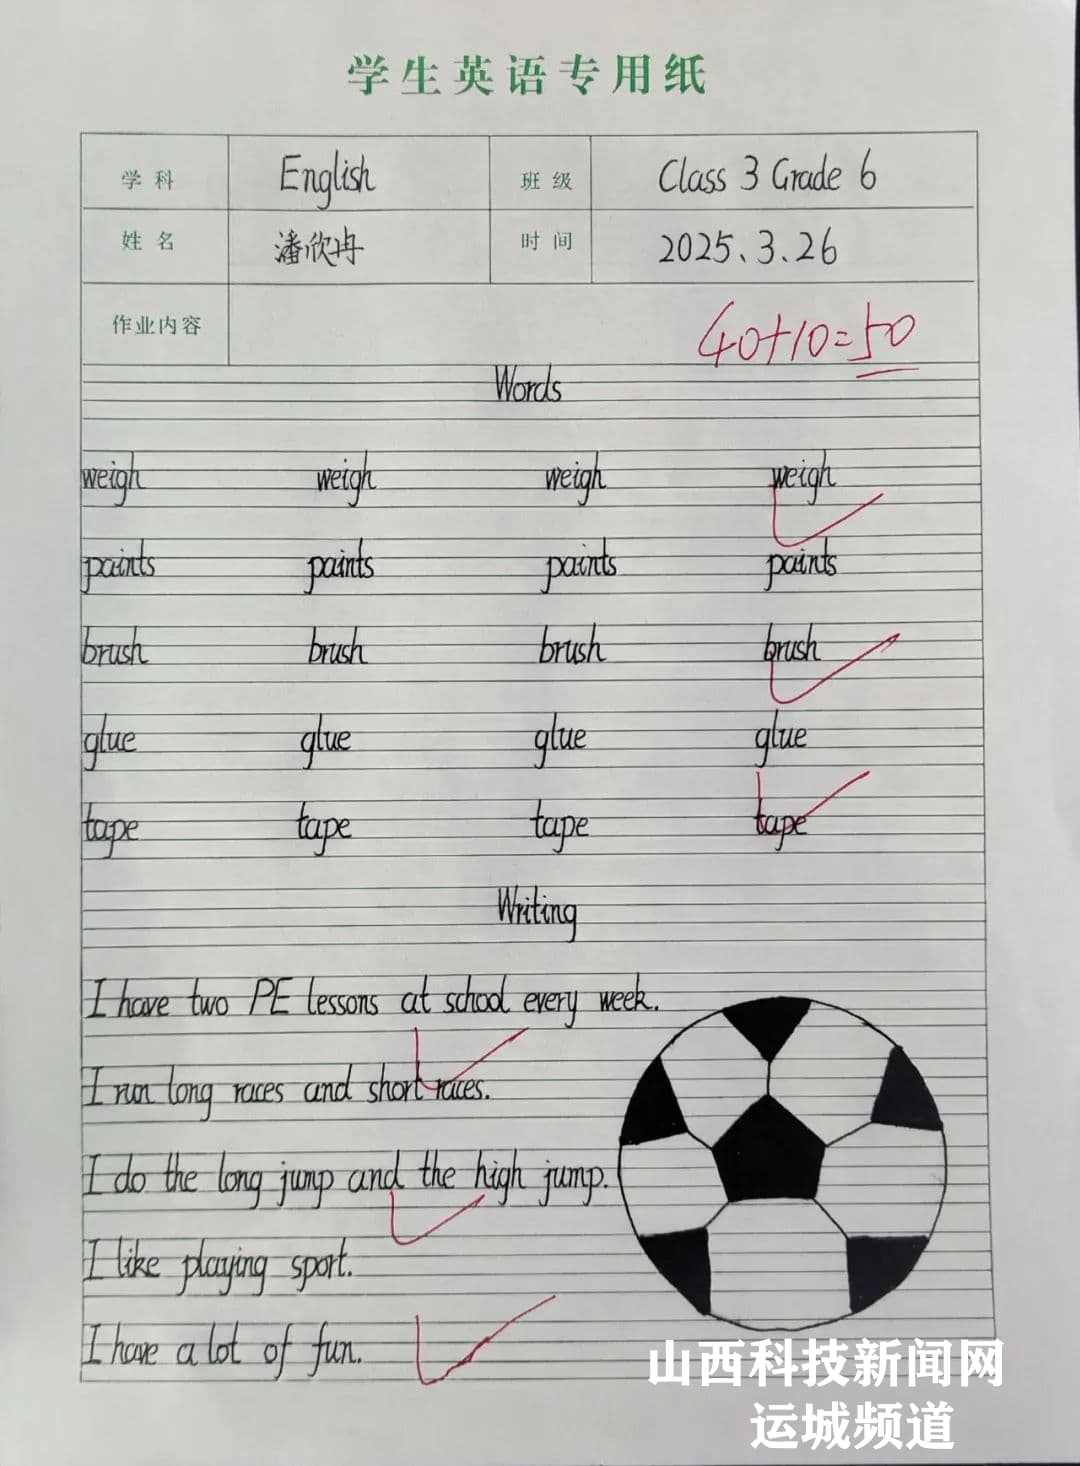 学生英语专用纸
学科 English 班级 Class 3 Grade 6
姓名 潘欣冉 时间 2025、3.26
作业内容
40+10=50
Words
weigh weigh weigh weigh
paints paints paints paints
brush brush brush brush
glue glue glue glue
tape tape tape tape
Writing
I have two PE lessons at school every week.
I run long races and short races.
I do the long jump and the high jump.
I like playing sport.
I have a lot of fun.
山西科技新闻网
运城频道